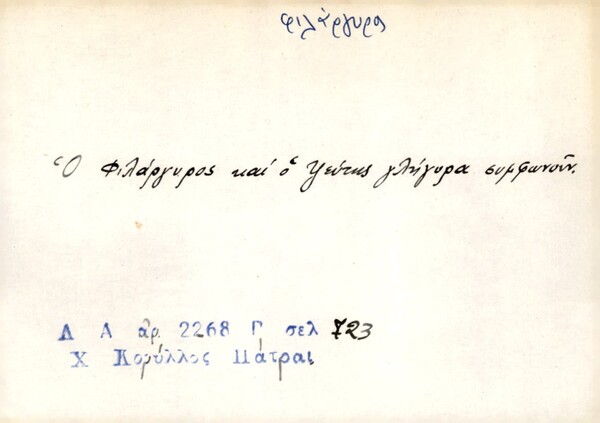 φιλάργυρος
Ὁ Φιλάργυρος καί ὁ Ψεύτης γλήγορα συμφωνοῦν.
Λ Α ἀρ. 2268 Γ σελ 723
Χ Κορύλλος Πάτραι